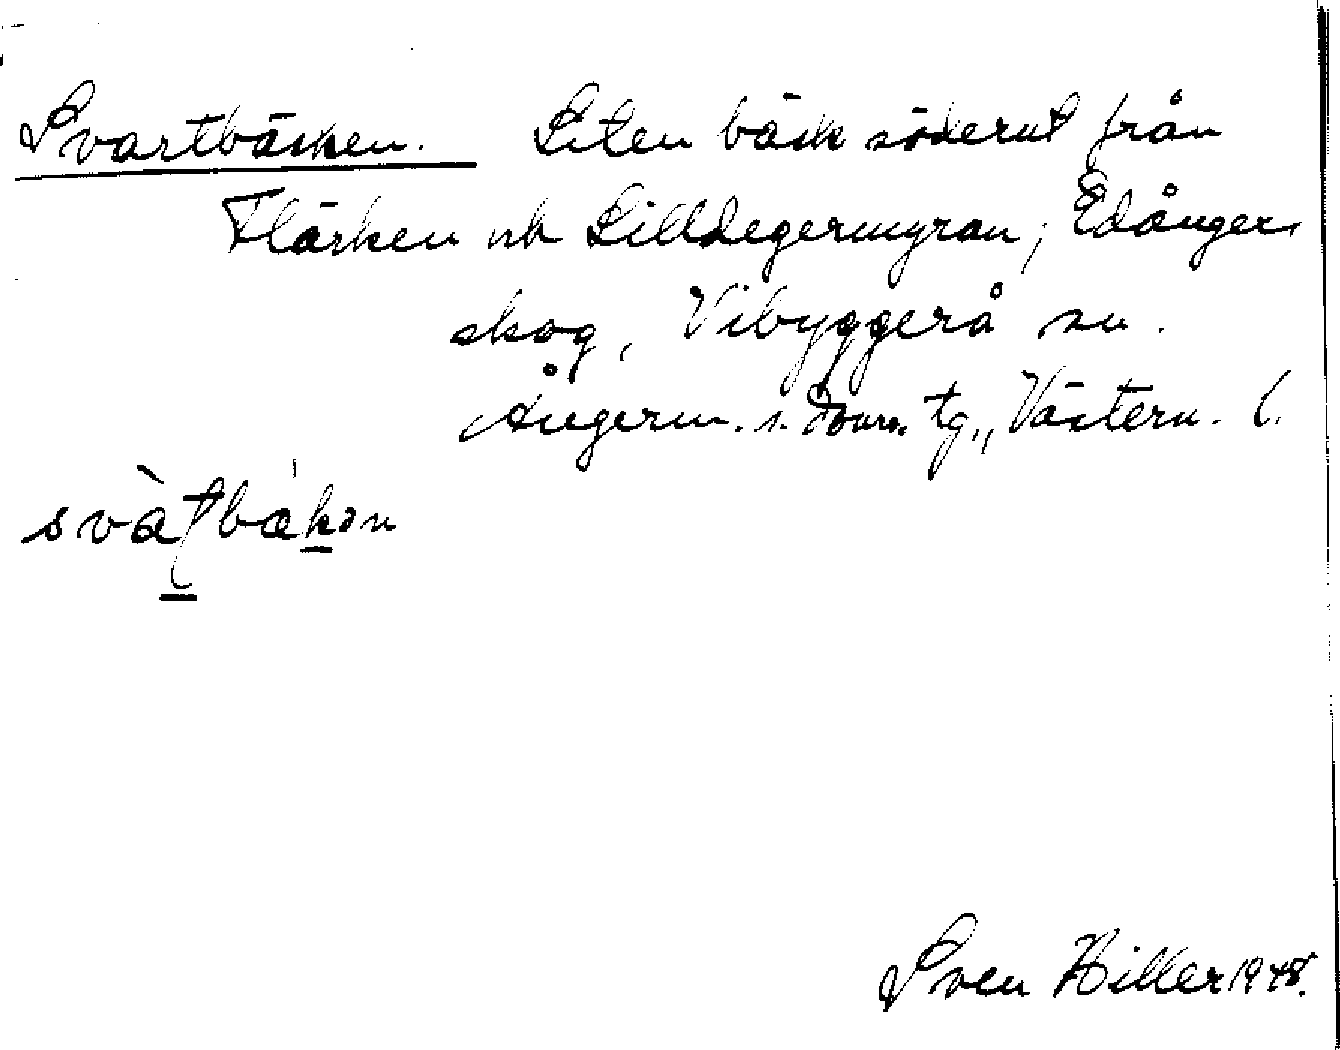 Svartbäcken. Liten bäck söderut från
Flärken och Lilldegermyran, Edånger
skog, Vibyggerå sn.
Ångerm. s. doms. tg., Västern. l.
svàt̲bák̲ən
Sven Hiller 1948.